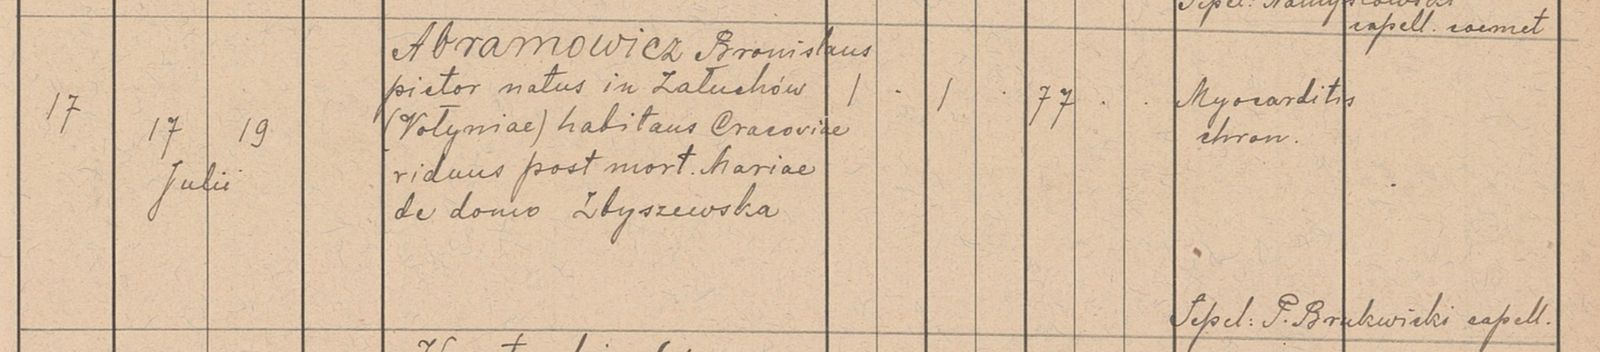 Sepel: Namysłowski
capell. coemet
Abramowicz Bronislaus
pictor natus in Załuchów
(Wołyniae) habitans Cracoviae
viduus post mort. Mariae
de domo Zbyszewska
17
17 19
Julii
1 . 1 . 77 . .
Myocarditis
chron.
Sepel: P. Brukwicki capell.